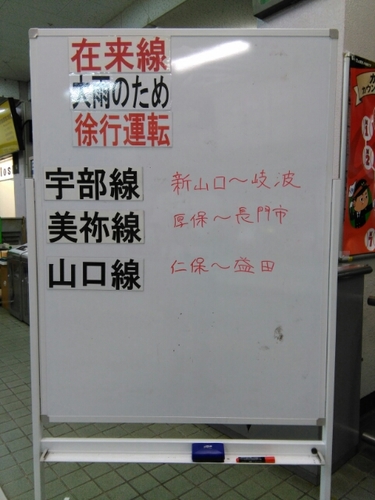 在来線
大雨のため
徐行運転
宇部線 新山口～岐波
美祢線 厚保～長門市
山口線 仁保～益田